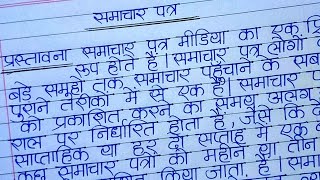 समाचार पत्र
प्रस्तावना समाचार पत्र मीडिया का एक
रूप होते हैं। समाचार पत्र लोगों
बड़े समूहों तक समाचार पहुंचाने के सब
पुराने तरीकों में से एक है। समाचार प
को प्रकाशित करने का समय अलग
राल पर निर्धारित होता है, जैसे कि दै
साप्ताहिक या हर दो सप्ताह में एक
कुछ समाचार पत्रों को महीने या तीन
किया जाता है।